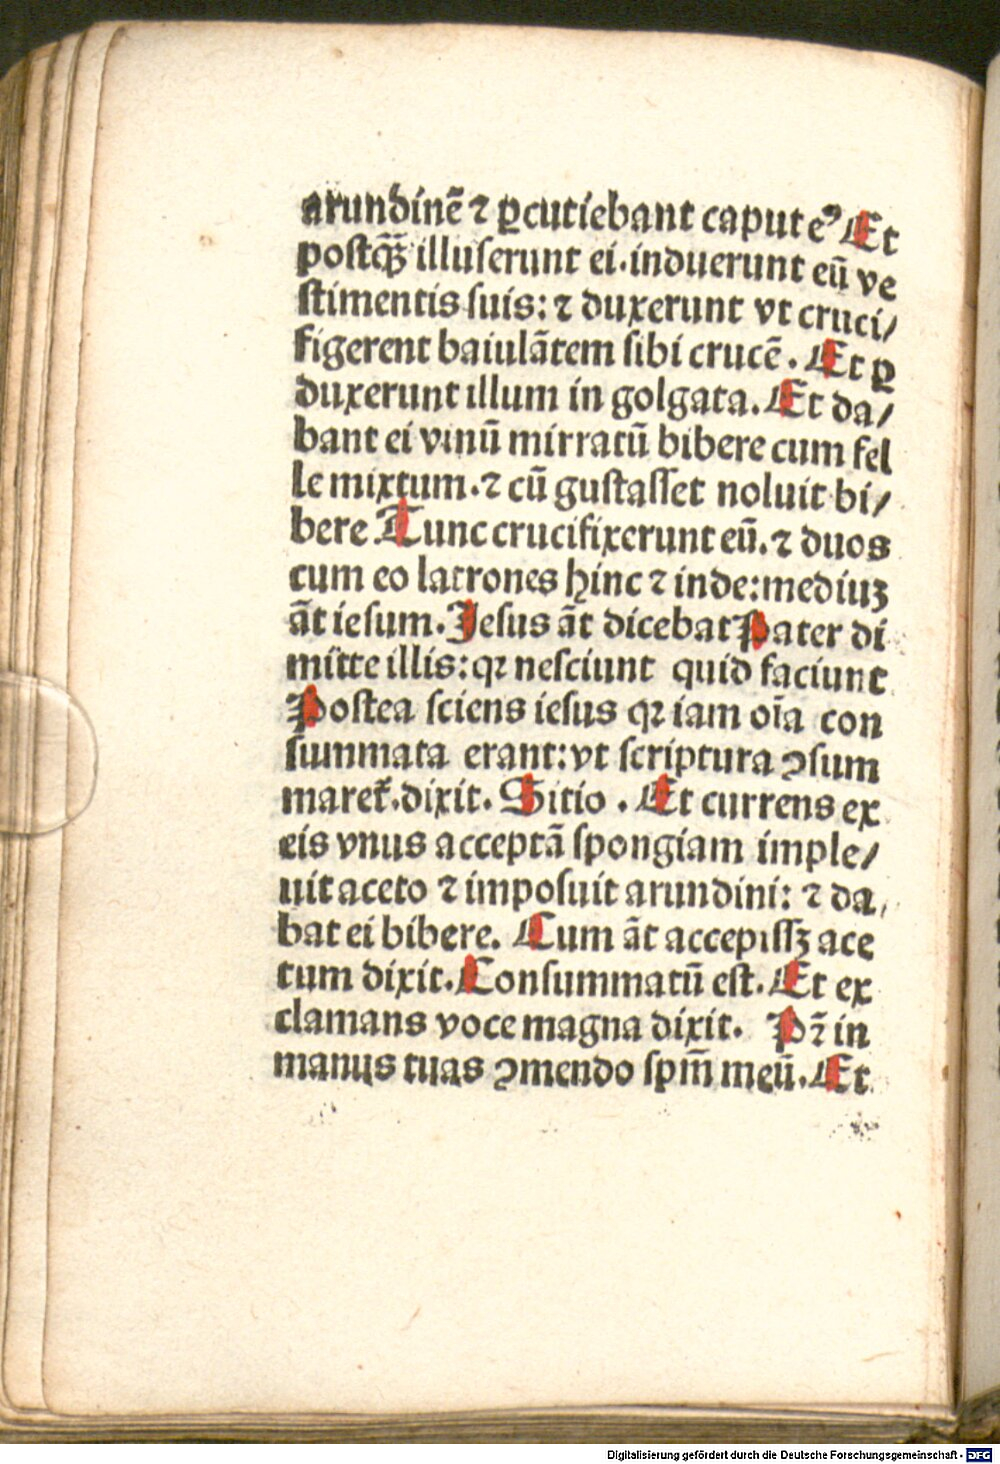 arundinē ⁊ ꝑcutiebant caput eꝰ Et
postqȝ̄ illuserunt ei.induerunt eū ve
stimentis suis: ⁊ duxerunt vt cruci/
figerent baiulātem sibi crucē. Et ꝑ
duxerunt illum in golgata. Et da/
bant ei vinū mirratū bibere cum fel
le mixtum.⁊ cū gustasset noluit bi/
bere Tunc crucifixerunt eū.⁊ duos
cum eo latrones hinc ⁊ inde:mediuȝ
āt iesum. Jesus āt dicebat Pater di
mitte illis:qꝛ nesciunt quid faciunt
Postea sciens iesus qꝛ iam oīa con
summata erant:vt scriptura ꝯsum
maret̄.dixit. Sitio . Et currens ex
eis vnus acceptā spongiam imple/
uit aceto ⁊ imposuit arundini: ⁊ da,
bat ei bibere. Cum āt accepissȝ ace
tum dixit. Consummatū est. Et ex
clamans voce magna dixit. Pr̄ in
manus tuas ꝯmendo spm̄ meū. Et
Digitalisierung gefördert durch die Deutsche Forschungsgemeinschaft - DFG